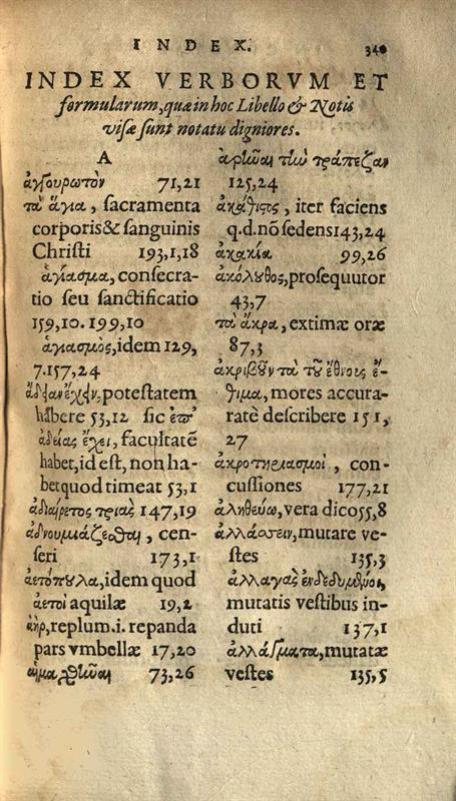 INDEX.
340
INDEX VERBORVM ET
formularum, quæ in hoc Libello & Notis
visæ sunt notatu digniores.
A
ἀγγουρωτὸν 71,21
τὰ ἅγια, sacramenta
corporis & sanguinis
Christi 193,1,18
ἁγίασμα, consecra-
tio seu sanctificatio
159,10. 199,10
ἁγιασμὸς, idem 129,
7.157,24
ἄδειαν ἔχειν, potestatem
habere 53,12 sic ἐπ'
ἀδείας ἔχει, facultatē
habet, id est, non ha-
bet quod timeat 53,1
ἀδιαίρετος τριὰς 147,19
ἀδνουμιάζεσθαι, cen-
seri 173,1
ἀετόπουλα, idem quod
ἀετοὶ aquilæ 19,2
ἀὴρ, replum.i. repanda
pars vmbellæ 17,20
73,26
τὴν τράπεζαν
125,24
ἀκάθιστος, iter faciens
q.d. nō sedens 143,24
ἀκακία 99,26
ἀκόλουθος, prosequutor
43,7
τὰ ἄκρα, extimæ oræ
87,3
ἀκριβοῦν τὰ τοῦ ἔθνους ἔ-
θιμα, mores accura-
ratè describere 151,
27
ἀκροτηριασμοὶ, con-
cussiones 177,21
ἀληθεύω, vera dico 55,8
ἀλλάσσειν, mutare ve-
stes 135,3
ἀλλαγὰς ἐνδεδυμένοι,
mutatis vestibus in-
duti 137,1
ἀλλάσματα, mutatæ
vestes 135,5